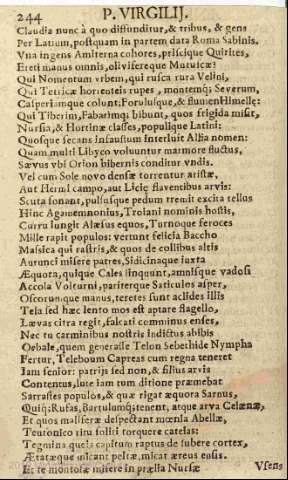 244 P. VIRGILIJ.
Claudia nunc à quo diffunditur, & tribus, & gens
Per Latium, postquam in partem data Roma Sabinis.
Vna ingens Amiterna cohors, priscique Quirites,
Ereti manus omnis, oliviferæque Mutuscæ:
Qui Nomentum vrbem, qui rusca rura Velini,
Qui Tetricæ horrenteis rupes, montemq; Severum,
Casperiamque colunt; Forulosque, & flumen Himellę:
Qui Tiberim, Fabarimq; bibunt, quos frigida misit,
Nursia, & Hortinæ classes, populique Latini:
Quosque secans infaustum interluit Allia nomen:
Quam multi Libyco voluuntur marmore fluctus,
Sævus vbi Orion hibernis conditur vndis.
Vel cum Sole novo densæ torrentur aristæ,
Aut Hermi campo, aut Licię flaventibus arvis:
Scuta sonant, pulsuque pedum tremit excita tellus
Hinc Agamemnonius, Troiani nominis hostis,
Curru iungit Alæsus equos, Turnoque feroces
Mille rapit populos: vertunt felicia Baccho
Massica qui rastris, & quos de collibus altis
Aurunci misere patres, Sidicinaque iuxta
Æquora, quique Cales linquunt, amnisque vadosi
Accola Volturni, pariterque Saticulus asper,
Oscorumque manus, teretes sunt aclides illis
Tela sed hæc lento mos est aptare flagello,
Lævas citra tegit, falcati comminus enses,
Nec tu carminibus nostris indictus abibis
Oebale, quem generasse Telon Sebethide Nympha
Fertur, Teleboum Capreas cum regna teneret
Iam senior: patrijs sed non, & filius arvis
Contentus, late iam tum ditione præmebat
Sarrastes populos, & quæ rigat æquora Sarnus,
Quiq; Rufas, Bartulumq; tenent, atque arva Celænæ,
Et quos maliferæ despectant mœnia Abellæ,
Teutonico ritu soliti torquere cateias:
Tegmina queis capitum raptus de subere cortex,
Æratæque micant peltæ, micat æreus ensis.
Et te montosæ misere in prælia Nursæ
Vsens